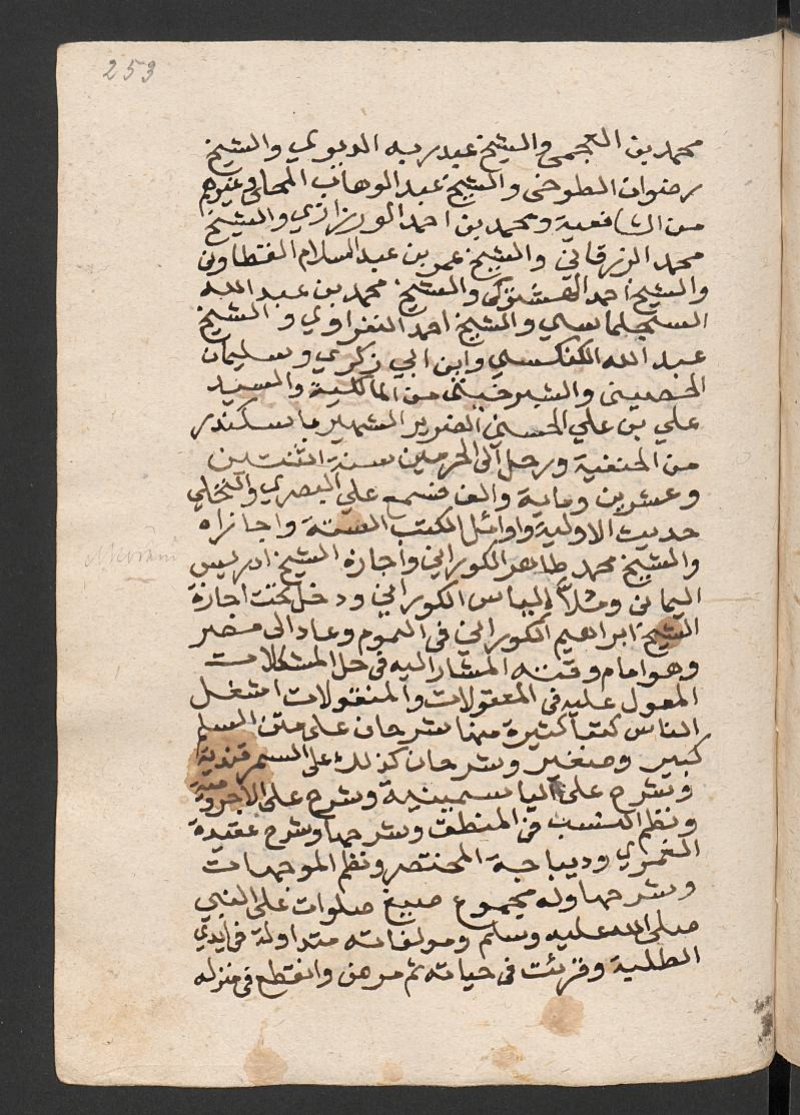 253
محمد بن العجمي والشيخ عبد ربه الديوي والشيخ
رضوان الطوخى والشيخ عبد الوهاب المحلى وغيرهم
من الشافعية ومحمد بن احمد الورزازي والشيخ
محمد الزرقاني والشيخ عمر بن عبد السلام التطاونى
والشيخ احمد الهشتوكى والشيخ محمد بن عبد الله
السجلماسي والشيخ احمد النفراوي والشيخ
عبد الله الكنكسي وابن ابي زكري وسليمان
الحصينى والشبرخيتى من المالكية والسيد
علي بن علي الحسيني الضرير الشهير باسكندر
من الحنفية ورحل الى الحرمين سنة اثنتين
وعشرين وماية والف فسمع علي البصري والنخلي
حديث الاولية واوائل الكتب الستة واجازاه
والشيخ محمد طاهر الكوراني واجازه الشيخ ادريس
اليمانى ومنلا الياس الكوراني ودخل تحت اجازة
الشيخ ابراهيم الكوراني فى العموم وعاد الى مصر
وهو امام وقته المشار اليه فى حل المشكلات
المعول عليه فى المعقولات والمنقولات اشغل
الناس كتبا كثيرة منها شرحان على متن السلم
كبير وصغير وشرحان كذلك على السمرقندية
وشرح على الياسمينية وشرح على الاجرومية
ونظم النسب فى المنطق وشرحها وشرح عقيدة
الغمري وديباجة المختصر ونظم الموجهات
وشرحها وله مجموع صيغ صلوات على النبي
صلى الله عليه وسلم ومولفاته متداولة فى ايدي
الطلبة وقرئت فى حياته ثم مرض وانقطع فى منزله